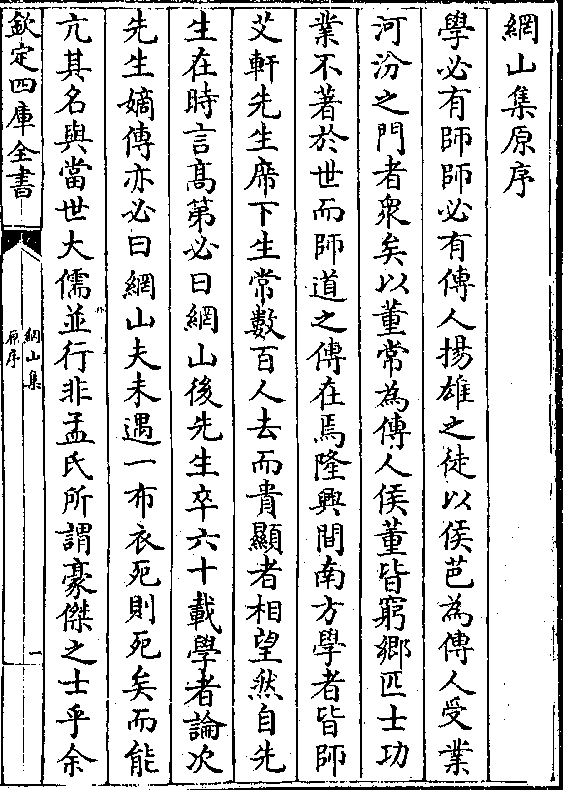 網山集原序
學必有師師必有傳人揚雄之徒以侯芭為傳人受業
河汾之門者衆矣以董常為傳人侯董皆窮鄉匹士功
業不著於世而師道之傳在焉隆興間南方學者皆師
艾軒先生席下生常數百人去而貴顯者相望然自先
生在時言髙第必曰網山後先生卒六十載學者論次
先生嫡傳亦必曰網山夫未遇一布衣死則死矣而能
亢其名與當世大儒並行非孟氏所謂豪傑之士乎余
欽定四庫全書
網山集
原序
一